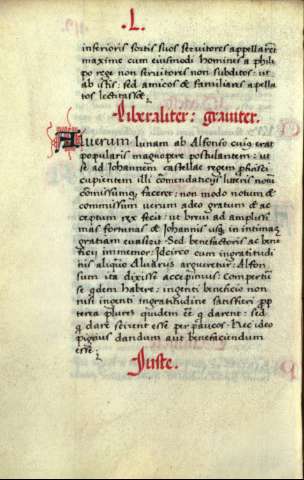 .L.
inferioris sortis suos servitores appellaret
maxime cum eiusmodi homines a phili
po rege non servitores non subditos: ut
ab istis: sed amicos & familiaris apella
tos lectitasse
Liberaliter: graviter.
Alverum lunam ab Alfonso cuiq erat
popularis magnopere postulantem: ut
se ad Iohannem castellae regem
cupientem illi comendaticiis literis noti
comissimuq faceret: non modo notum &
commissum verum adeo gratum & ac
ceptum rex fecit: ut brevi ad amplissi
mas fortunas & Iohannis usq in intimaz
gratiam evaserit. Sed benefactoris ac bene
ficii immemor: Idcirco cum ingratitudi
nis aliquo Alvarus argueretur Alfon
sum ita dixisse accepimus: Compertu
se qdem habere: ingenti beneficio non
nisi ingenti ingratitudine satisfieri prop
terea plures quidem esse q darent: sed
q dare scirent esse per paucos: Nec ideo
pigrius dandum aut benefaciendum
esse
Iuste.